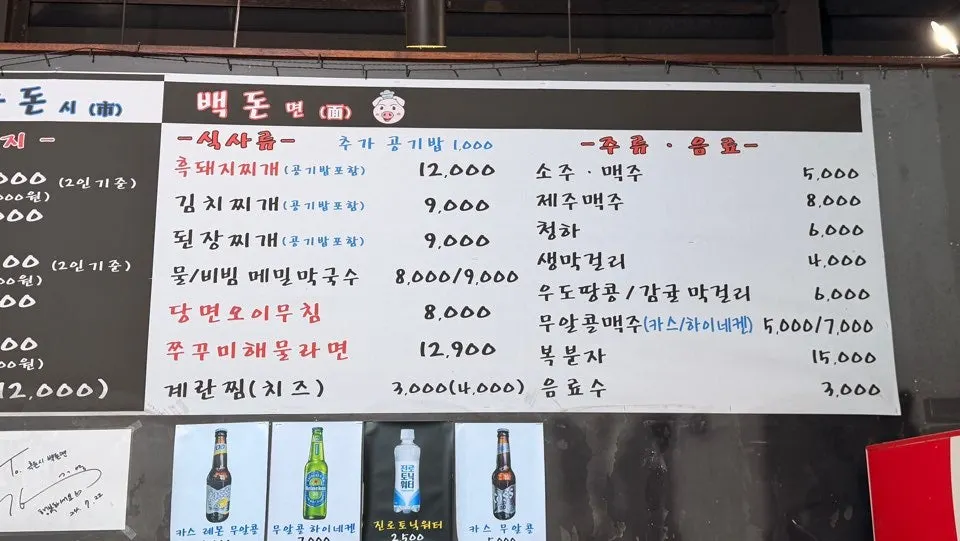 돈 시 (市)
지 -
000 (2인기준)
000원)
000
00 (2인기준)
0원)
00
00
00원)
12,000)
백돈면 (面)
-식사류-
추가 공기밥 1,000
흑돼지찌개(공기밥포함) 12,000
김치찌개(공기밥포함) 9,000
된장찌개(공기밥포함) 9,000
물/비빔 메밀막국수 8,000/9,000
당면오이무침 8,000
쭈꾸미해물라면 12,900
계란찜(치즈) 3,000(4,000)
-주류·음료-
소주·맥주 5,000
제주맥주 8,000
청하 6,000
생막걸리 4,000
우도땅콩/감귤막걸리 6,000
무알콜맥주(카스/하이네켄) 5,000/7,000
복분자 15,000
음료수 3,000
To.
24. 7. 22
Heineken
진로
토닉
워터
카스 레몬 무알콜
무알콜 하이네켄
진로토닉워터
2500
카스 무알콜